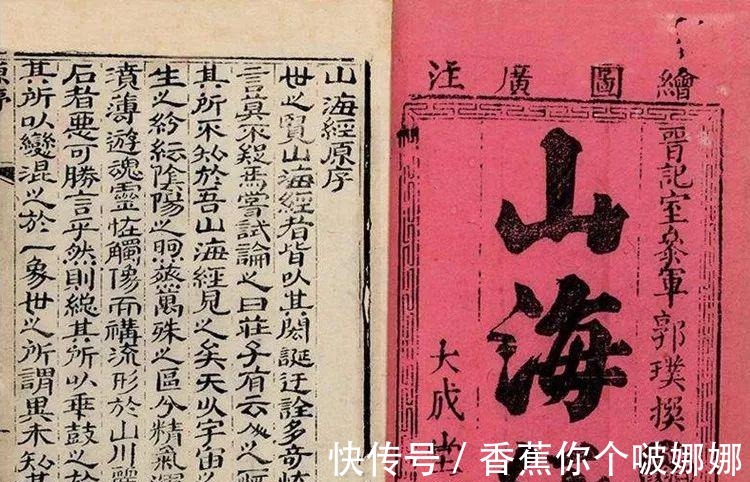 繪圖廣注
晉記室參軍郭璞撰
山海
大成堂
山海經原序
世之覽山海經者皆以其閎誕迂誇多奇
言莫不疑焉嘗試論之曰莊子有云人
其所不知於吾山海經見之矣天以宇宙
生之紛紜陰陽之煦蒸萬殊之區分精氣渾
濆薄遊魂靈怪觸像而構流形於山川麗
石者惡可勝言乎然則總其所以乖鼓之於
其所以變混之於一象世之所謂異未知其
原序
快传号 / 香蕉你个啵娜娜